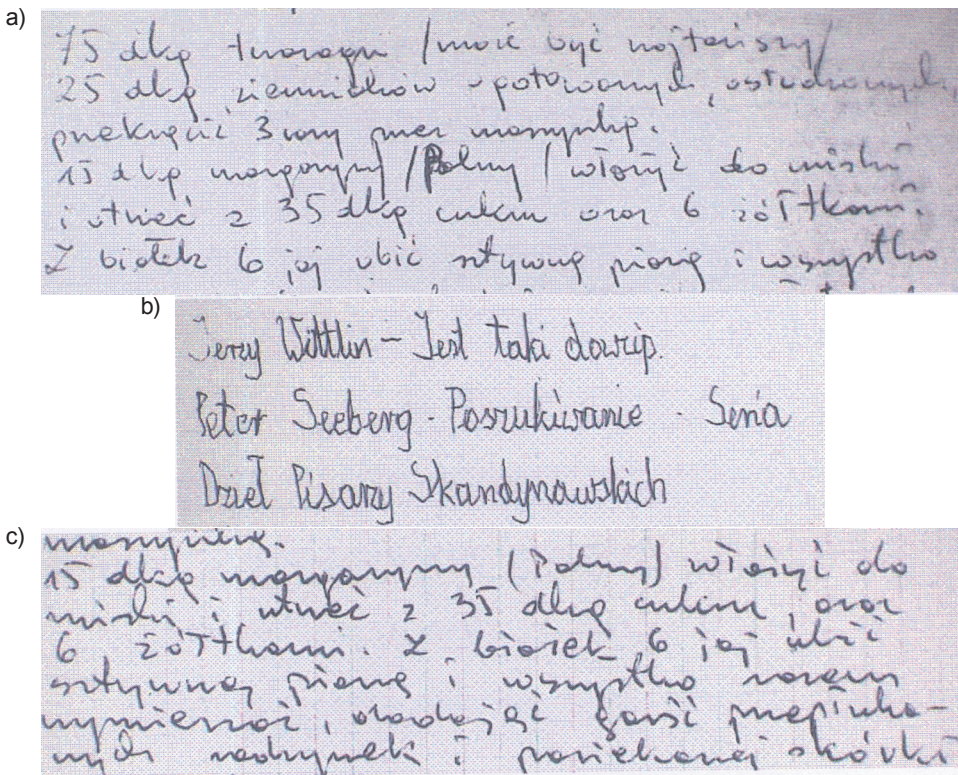 a)
75 dkg twarogu /może być najtańszy/
25 dkg ziemniaków ugotowanych, ostudzonych,
przekręcić 3 razy przez maszynkę.
15 dkg margaryny /Palmy/ włożyć do miski
i utrzeć z 35 dkg cukru oraz 6 żółtkami.
Z białek 6 jaj ubić sztywną pianę i wszystko
b)
Jerzy Wittlin - Jest taki dowcip.
Peter Seeberg - Poszukiwanie - Seria
Dzieł Pisarzy Skandynawskich
c)
maszynkę.
15 dkg margaryny (Palmy) włożyć do
miski i utrzeć z 35 dkg cukru, oraz
6 żółtkami. Z białek 6 jaj ubić
sztywną pianę i wszystko razem
wymieszać, dodając garść przepłuka-
nych rodzynek i posiekanej skórki